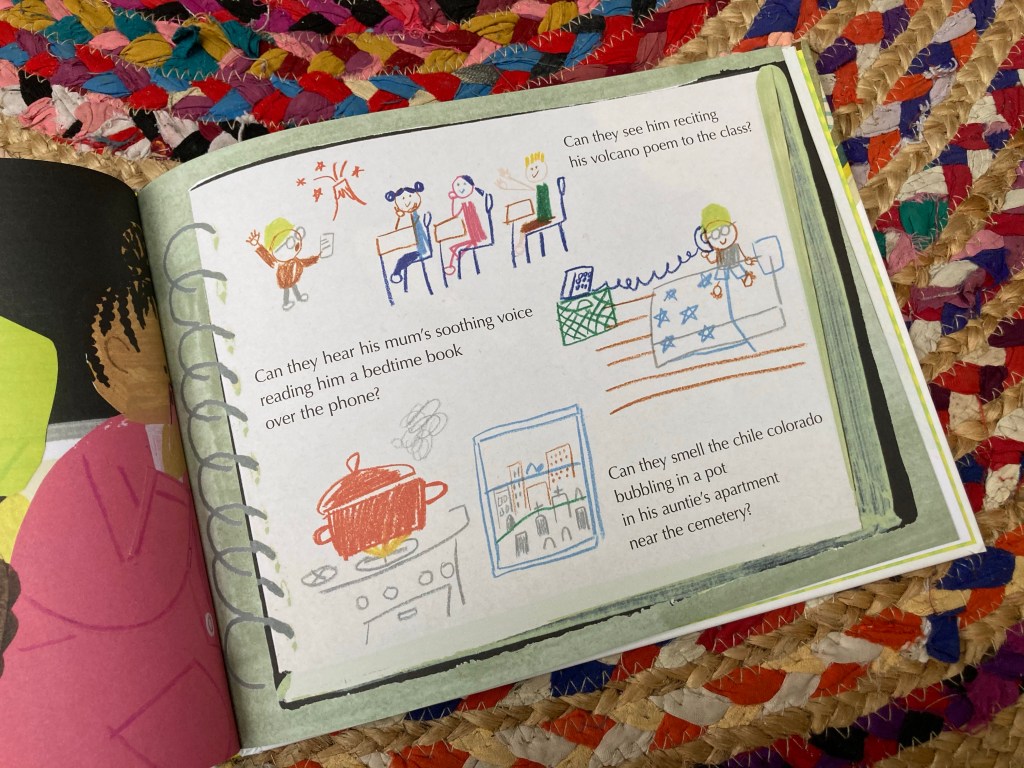 Can they see him reciting
his volcano poem to the class?
Can they hear his mum's soothing voice
reading him a bedtime book
over the phone?
Can they smell the chile colorado
bubbling in a pot
in his auntie's apartment
near the cemetery?